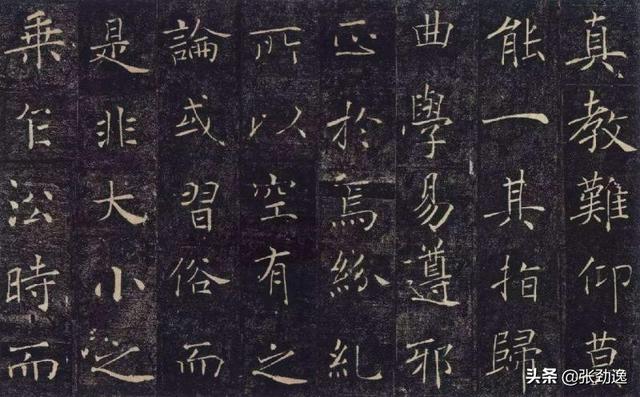 真教難仰莫
能一其指歸
曲學易遵邪
正於焉紛糺
所以空有之
論或習俗而
是非大小之
乘乍沿時而
头条 @张劲逸